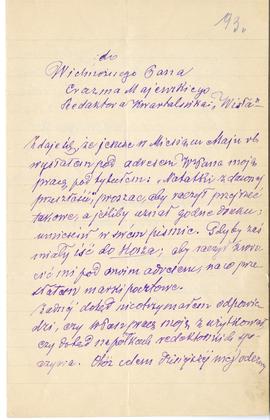 93.
do
Wielmożnego Pana
Erazma Majewskiego
Redaktora Kwartalnika „Wisła”
Zdaje się, że jeszcze w Miesiącu Maju rb
wysłałem pod adresem WPana moją
pracę pod tytułem: „Notatki z dawnej
przeszłości”, prosząc, aby raczył przejrzeć
takowe, a jeśliby uznał godne druku:
umieścił w swem piśmie. Gdyby zaś
miały iść do Kosza; aby raczył zwró-
cić mi pod moim adresem, na co prze-
słałem marki pocztowe.
Żadnej dotąd nie otrzymałem odpowie-
dzi, czy WPan pracę moją zużytkował
czy dotąd na półkach redaktorskich spo-
czywa. Otóż celem dzisiejszej mej odezwy